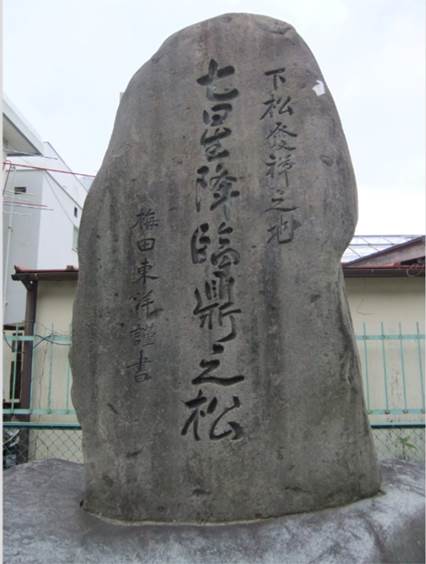 下松發祥之地
七星降臨鼎之松
梅田東洋謹書